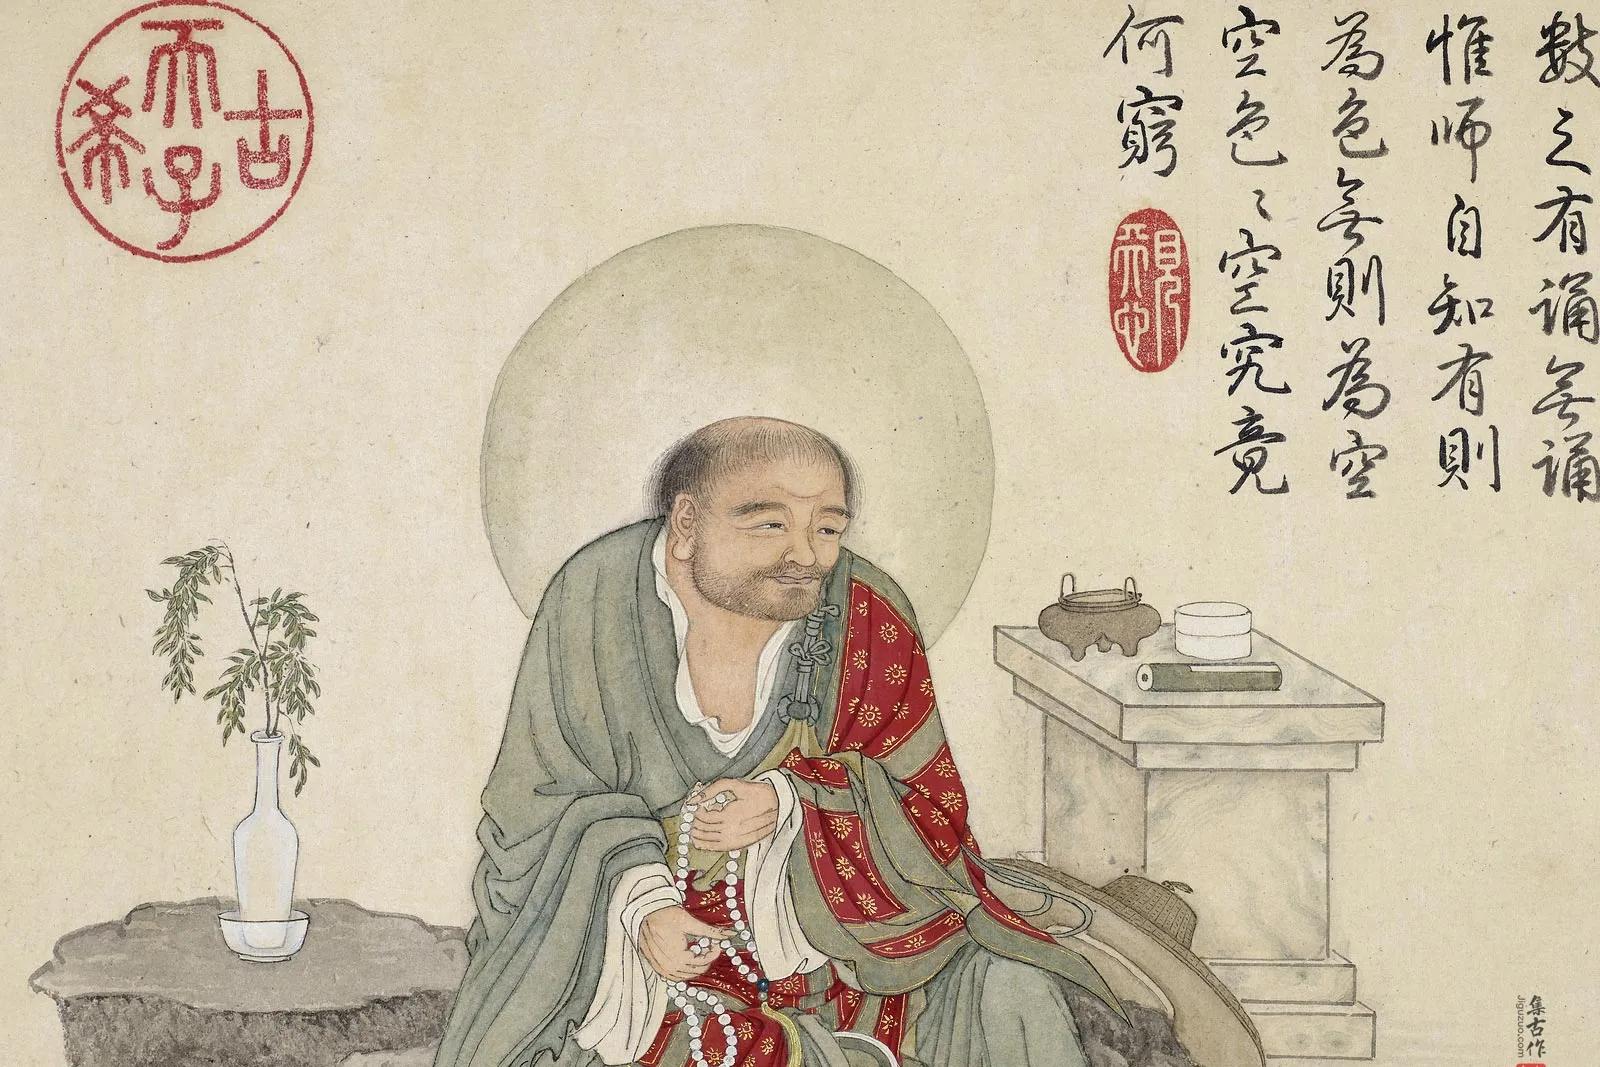 數之有誦無誦
惟師自知有則
為色無則為空
空色〻空究竟
何窮
見天心
古希天子
集古作
Jiguzuo.com